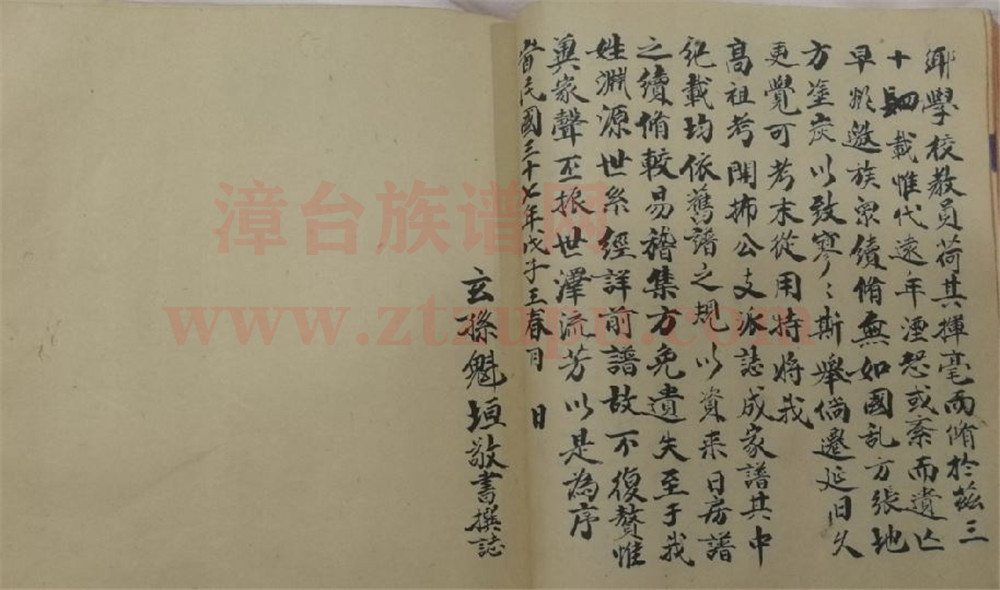 鄉學校教員荷其揮毫而脩於茲三
十四載惟代遠年湮恕或紊而遺亡
早欲邀族衆續脩無如國乱方張地
方塗炭以致寥〻斯舉倘遷延旧久
更覺可考末從用特將我
高祖考開拂公支派誌成家譜其中
紀載均依舊譜之規以資来日房譜
之續脩較易稽集方免遺失至于我
姓淵源世系經詳前譜故不復贅惟
冀家聲丕振世澤流芳以是為序
峕民國三十七年戊子王春月 日
玄孫魁垣敬書撰誌
漳台族谱网
www.ztzupu.com